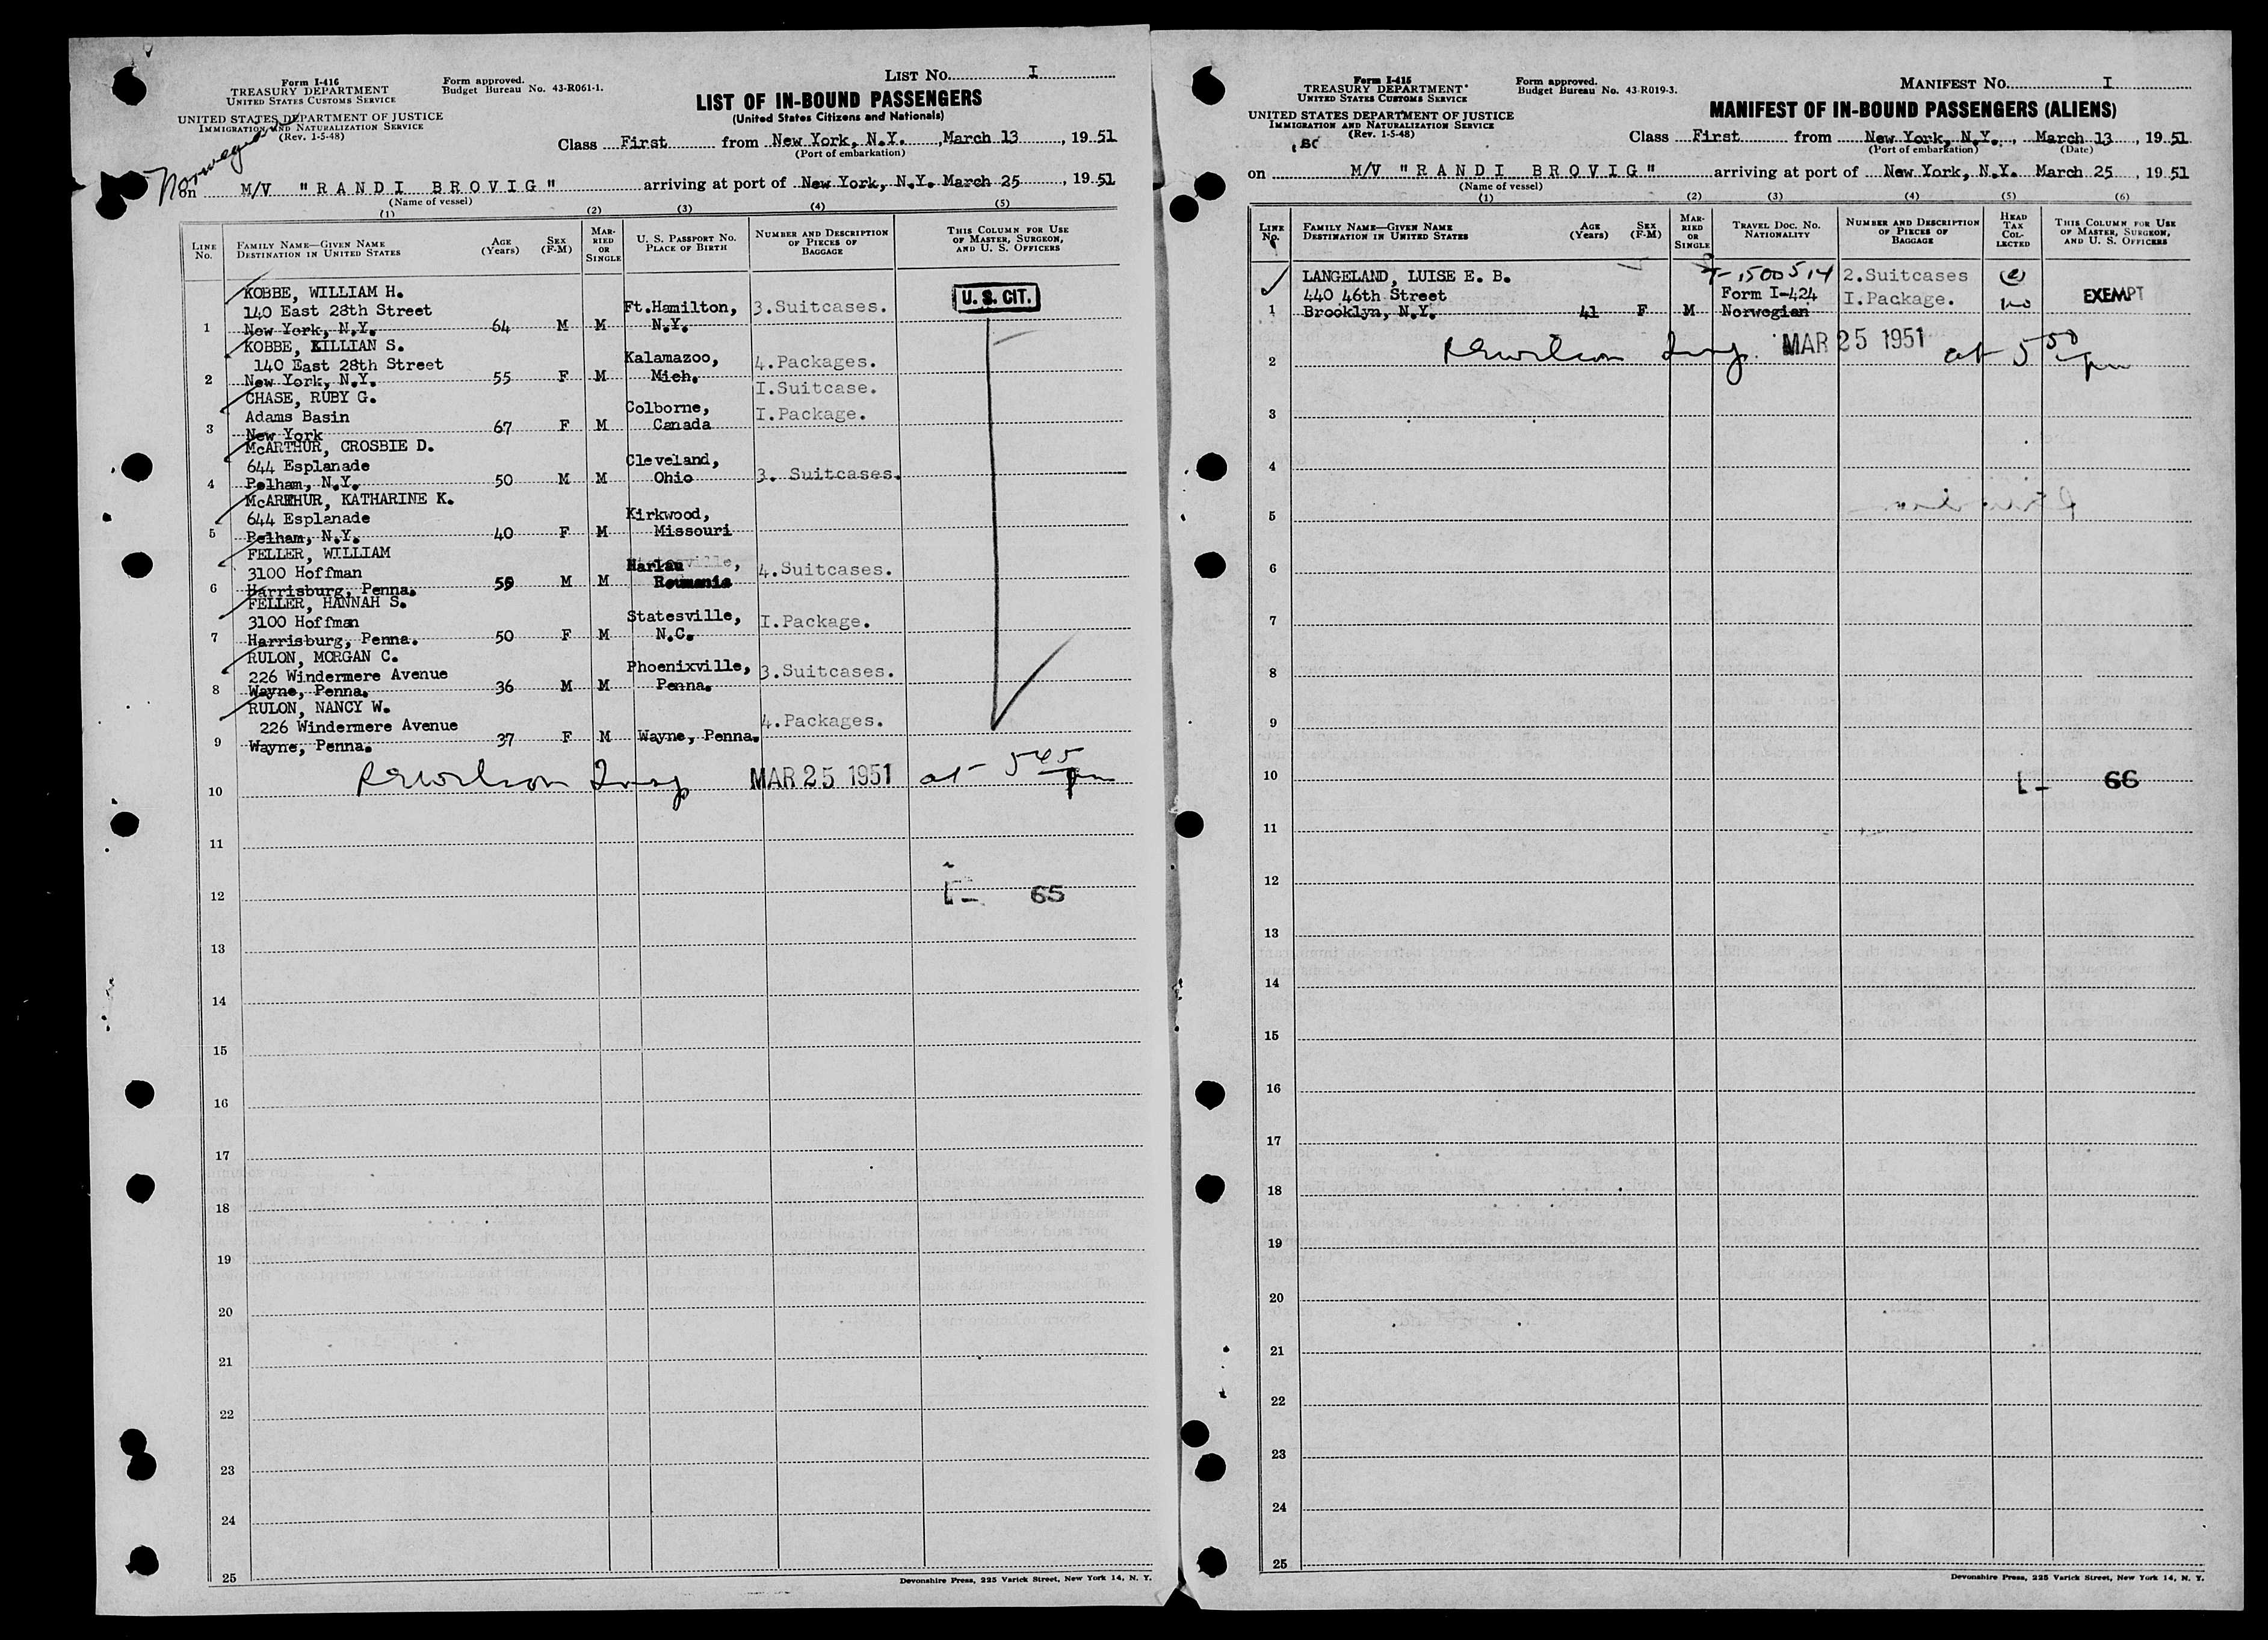 LIST NO. I
Form I-416
TREASURY DEPARTMENT
UNITED STATES CUSTOMS SERVICE
Form approved.
Budget Bureau No. 43-R061-1.
LIST OF IN-BOUND PASSENGERS
(United States Citizens and Nationals)
UNITED STATES DEPARTMENT OF JUSTICE
IMMIGRATION AND NATURALIZATION SERVICE
(Rev. 1-5-48)
Norwegian
Class First from New York, N.Y., March 13, 1951
(Port of embarkation)
on M/V "RANDI BROVIG" arriving at port of New York, N.Y. March 25, 1951
(Name of vessel)
(1) (2) (3) (4) (5)
LINE No. FAMILY NAME—GIVEN NAME DESTINATION IN UNITED STATES AGE (Years) SEX (F-M) MARRIED OR SINGLE U. S. PASSPORT NO. PLACE OF BIRTH NUMBER AND DESCRIPTION OF PIECES OF BAGGAGE THIS COLUMN FOR USE OF MASTER, SURGEON, AND U. S. OFFICERS
KOBBE, WILLIAM H.
140 East 28th Street Ft.Hamilton, 3.Suitcases. U. S. CIT.
1 New York, N.Y. 64 M M N.Y.
KOBBE, LILLIAN S.
140 East 28th Street Kalamazoo, 4.Packages.
2 New York, N.Y. 55 F M Mich. I.Suitcase.
CHASE, RUBY G.
Adams Basin Colborne, I.Package.
3 New York 67 F M Canada
McARTHUR, CROSBIE D.
644 Esplanade Cleveland,
4 Pelham, N.Y. 50 M M Ohio 3. Suitcases.
McARTHUR, KATHARINE K.
644 Esplanade Kirkwood,
5 Pelham, N.Y. 40 F M Missouri
FELLER, WILLIAM
3100 Hoffman Harlau 4.Suitcases.
6 Harrisburg, Penna. M M Roumania
FELLER, HANNAH S.
3100 Hoffman Statesville, I.Package.
7 Harrisburg, Penna. 50 F M N.C.
RULON, MORGAN C.
226 Windermere Avenue Phoenixville, 3.Suitcases.
8 Wayne, Penna. 36 M M Penna.
RULON, NANCY W.
226 Windermere Avenue 4.Packages.
9 Wayne, Penna. 37 F M Wayne, Penna.
REWilson Insp MAR 25 1951 at 545 pm
10
11
12 L- 65
13
14
15
16
17
18
19
20
21
22
23
24
25
Devonshire Press, 225 Varick Street, New York 14, N. Y.
MANIFEST NO. I
Form I-415
TREASURY DEPARTMENT
UNITED STATES CUSTOMS SERVICE
Form approved.
Budget Bureau No. 43-R019-3.
MANIFEST OF IN-BOUND PASSENGERS (ALIENS)
UNITED STATES DEPARTMENT OF JUSTICE
IMMIGRATION AND NATURALIZATION SERVICE
(Rev. 1-5-48)
Class First from New York, N.Y., March 13, 1951
(Port of embarkation) (Date)
on M/V "RANDI BROVIG" arriving at port of New York, N.Y. March 25, 1951
(Name of vessel)
(1) (2) (3) (4) (5) (6)
LINE No. FAMILY NAME—GIVEN NAME DESTINATION IN UNITED STATES AGE (Years) SEX (F-M) MARRIED OR SINGLE TRAVEL DOC. NO. NATIONALITY NUMBER AND DESCRIPTION OF PIECES OF BAGGAGE HEAD TAX COLLECTED THIS COLUMN FOR USE OF MASTER, SURGEON, AND U. S. OFFICERS
LANGELAND, LUISE E. B. T-1500514 2.Suitcases
440 46th Street Form I-424 I.Package. EXEMPT
1 Brooklyn, N.Y. 41 F M Norwegian
REWilson Insp. MAR 25 1951 at 550 pm
2
3
4
5
6
7
8
9
10 L- 66
11
12
13
14
15
16
17
18
19
20
21
22
23
24
25
Devonshire Press, 225 Varick Street, New York 14, N. Y.